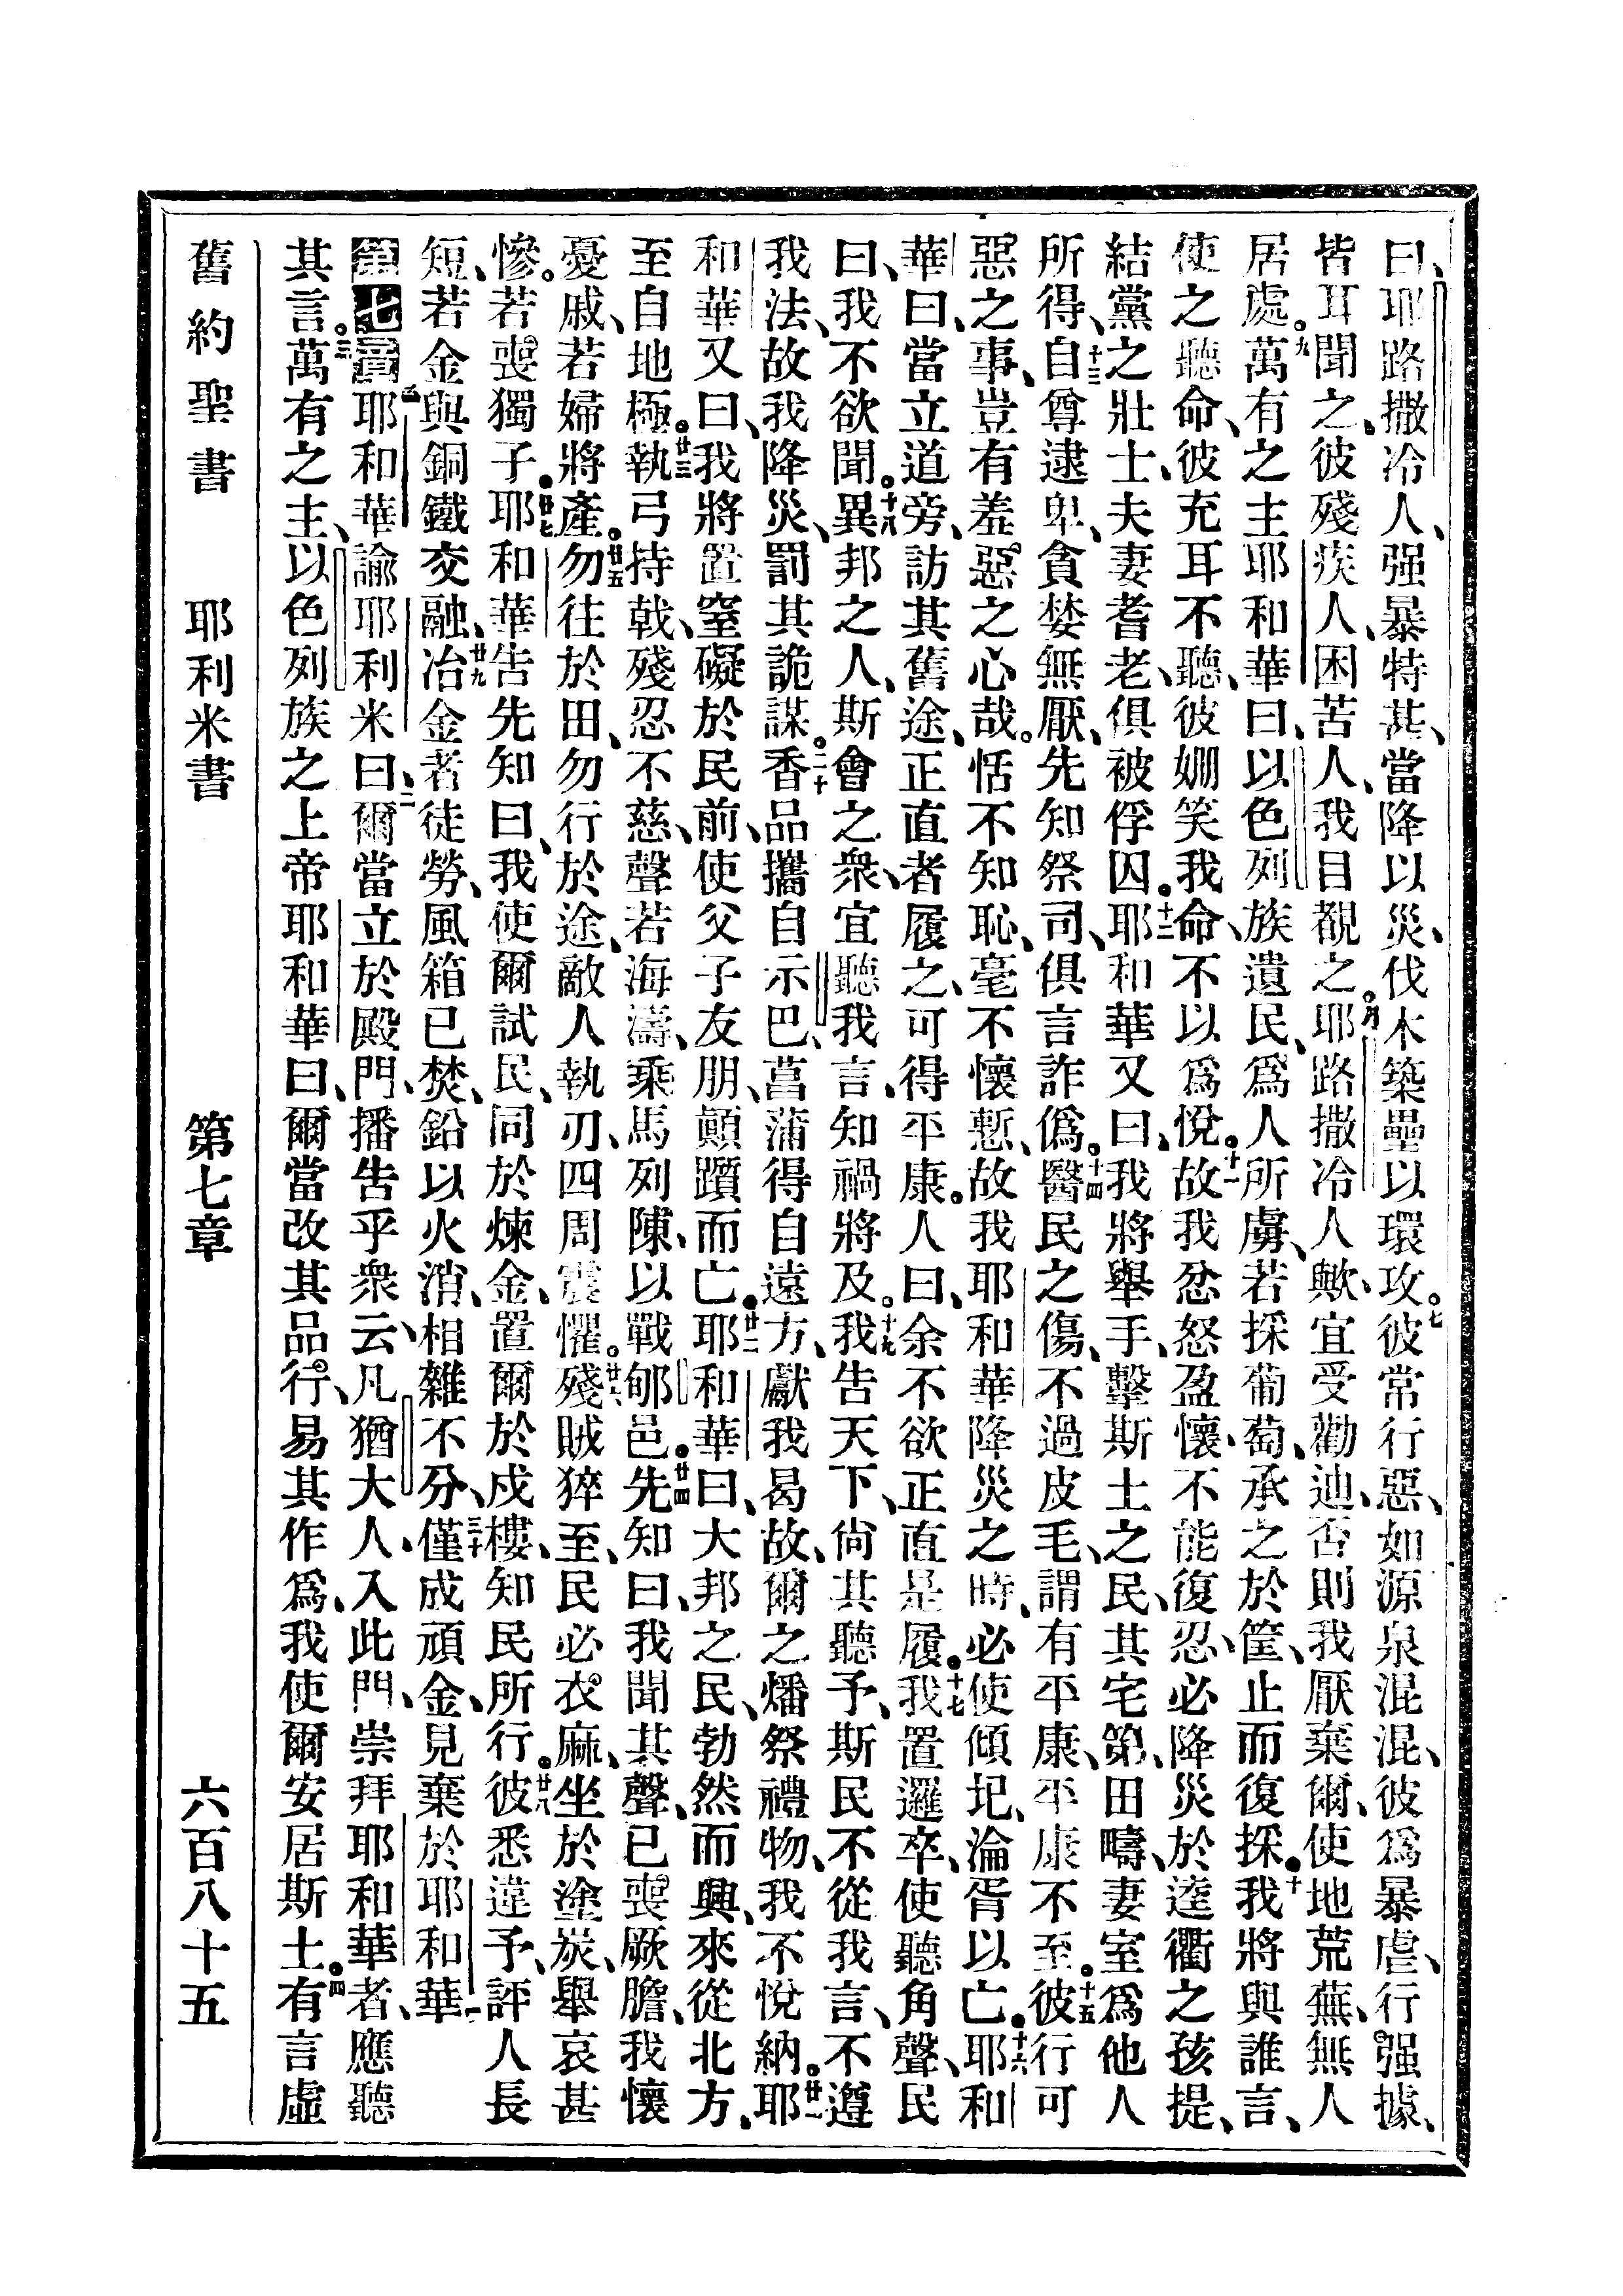 曰、耶路撒冷人、强暴特甚、當降以災、伐木築壘以環攻。七彼常行惡、如源泉混混、彼爲暴虐、行强據、
皆耳聞之、彼殘疾人、困苦人、我目覩之。八耶路撒冷人歟、宜受勸迪、否則我厭棄爾、使地荒蕪、無人
居處。九萬有之主耶和華曰、以色列族遺民、爲人所虜、若採葡萄、承之於筐、止而復採。十我將與誰言、
使之聽命、彼充耳不聽、彼姍笑我命、不以爲悅。十一故我忿怒盈懷、不能復忍、必降災於逵衢之孩提、
結黨之壯士、夫妻耆老、俱被俘囚。十二耶和華又曰、我將舉手、擊斯土之民、其宅第、田疇、妻室爲他人
所得、十三自尊逮卑、貪婪無厭、先知祭司、俱言詐僞。十四醫民之傷、不過皮毛、謂有平康、平康不至。十五彼行可
惡之事、豈有羞惡之心哉。恬不知恥、毫不懷慙、故我耶和華降災之時、必使傾圮、淪胥以亡。十六耶和
華曰、當立道旁、訪其舊途、正直者履之、可得平康。人曰、余不欲正直是履。十七我置邏卒、使聽角聲、民
曰、我不欲聞。十八異邦之人、斯會之衆、宜聽我言、知禍將及。十九我告天下、尙其聽予、斯民不從我言、不遵
我法、故我降災、罰其詭謀。二十香品攜自示巴、菖蒲得自遠方、獻我曷故、爾之燔祭禮物、我不悅納。廿一耶
和華又曰、我將置窒礙於民前、使父子友朋、顚躓而亡。廿二耶和華曰、大邦之民、勃然而興、來從北方、
至自地極。廿三執弓持戟、殘忍不慈、聲若海濤、乘馬列陳、以戰郇邑。廿四先知曰、我聞其聲、已喪厥膽、我懷
憂戚、若婦將產。廿五勿往於田、勿行於途、敵人執刃、四周震懼。廿六殘賊猝至、民必衣麻、坐於塗炭、舉哀甚
慘。若喪獨子。廿七耶和華告先知曰、我使爾試民、同於煉金、置爾於戍樓、知民所行。廿八彼悉違予、評人長
短、若金與銅鐵交融、廿九冶金者徒勞、風箱已焚、鉛以火消、相雜不分、三十僅成頑金、見棄於耶和華
第七章 一耶和華諭耶利米曰、二爾當立於殿門、播告乎衆云、凡猶大人、入此門、崇拜耶和華者、應聽
其言。三萬有之主、以色列族之上帝耶和華曰、爾當改其品行、易其作爲、我使爾安居斯土。四有言虛
舊約聖書 耶利米書 第七章 六百八十五